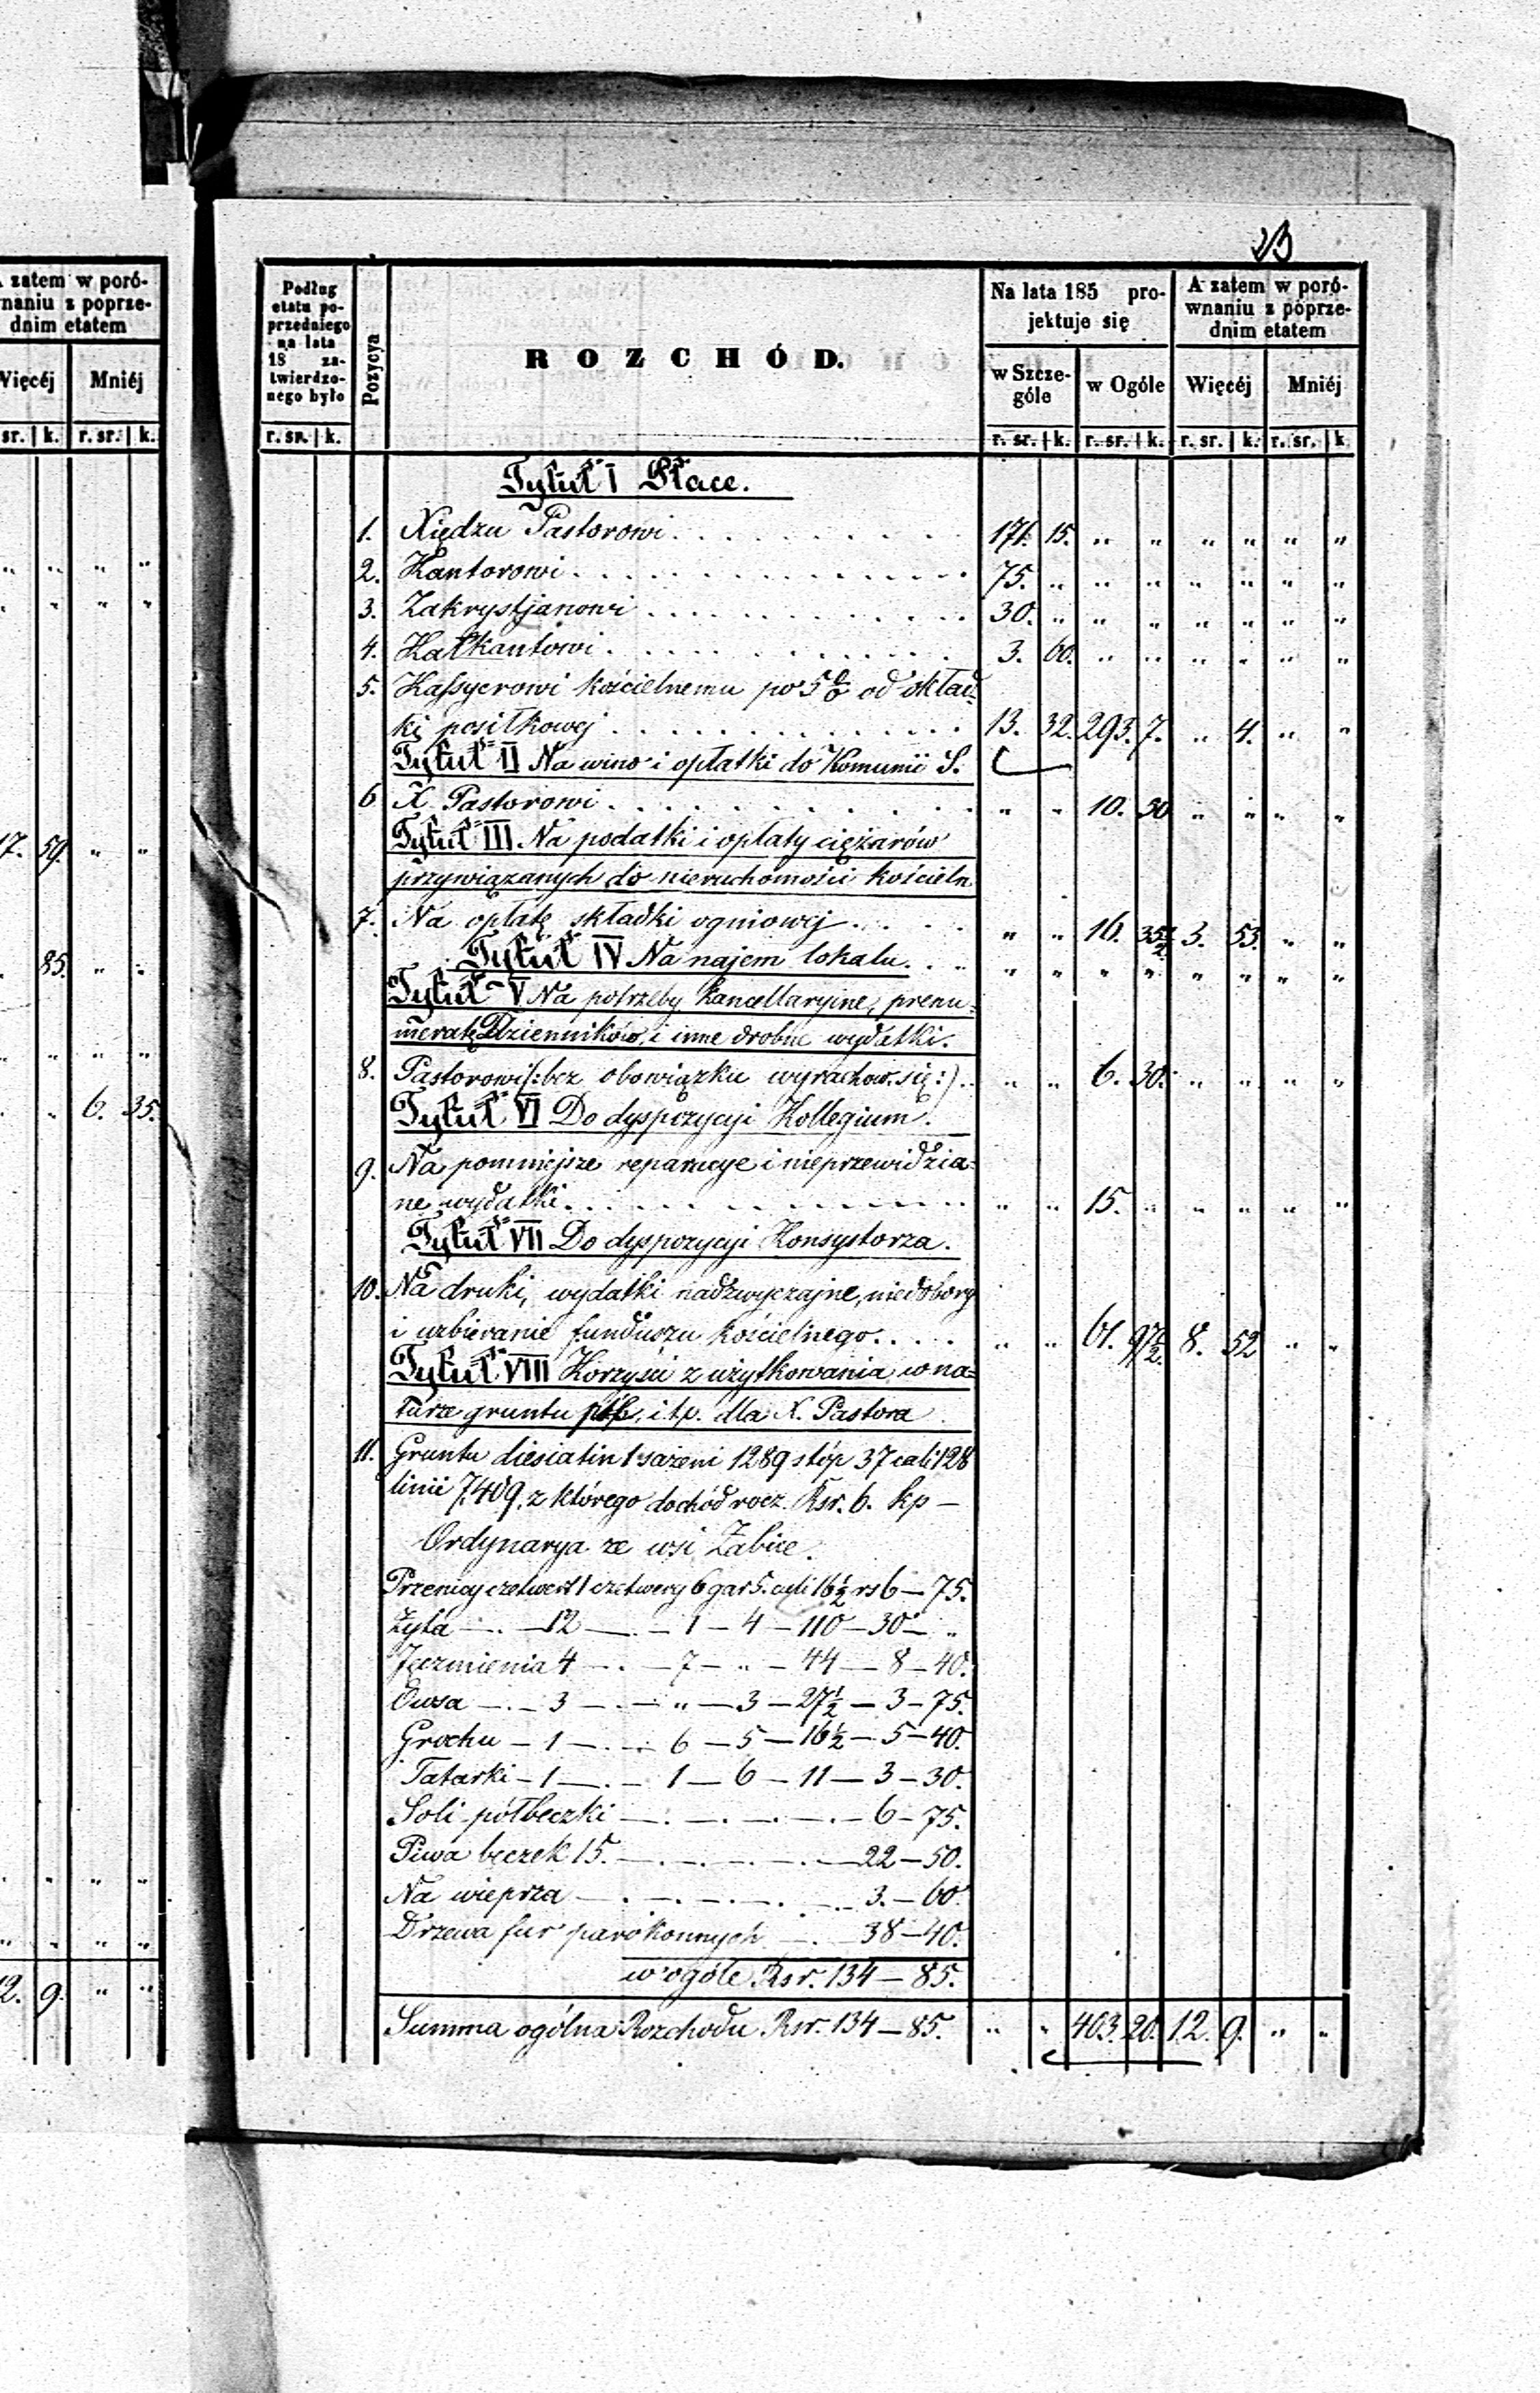 A zatem w poró-
wnaniu z poprze-
dnim etatem
Więcéj | Mniéj
sr. | k. | r. sr. | k.
„ „ „ „
„ „ „ „
17. 59. „ „
85. „ „
„ „ „ „
„ 6. 35.
„ „ „ „
„ „ „ „
12. 9. „ „
23
Podług etatu po-przedniego na lata 18 za-twierdzo-nego było | Pozycya | ROZCHÓD. | Na lata 185 pro-jektuje się | A zatem w poró-wnaniu z poprze-dnim etatem
w Szcze-góle | w Ogóle | Więcéj | Mniéj
r. sr. | k. | r. sr. | k. | r. sr. | k. | r. sr. | k. | r. sr. | k
Tytuł I Płace.
1. Xiędzu Pastorowi . . . 171. 15. „ „ „ „ „ „
2. Kantorowi . . . 75. „ „ „ „ „ „ „
3. Zakrystjanowi . . . 30. „ „ „ „ „ „ „
4. Kalkantowi . . . 3. 60. „ „ „ „ „ „
5. Kassyerowi kościelnemu po 5% od skład-
ki posiłkowej . . . 13. 32. 293. 7. „ 4. „ „
Tytuł II Na wino i opłatki do Komunii S.
6 X. Pastorowi . . . „ „ 10. 50 „ „ „ „
Tytuł III. Na podatki i opłaty ciężarów
przywiązanych do nieruchomości kościeln
7. Na opłatę składki ogniowej . . . „ „ 16. 35½ 3. 53. „ „
Tytuł IV Na najem lokalu. . . „ „ „ „ „ „ „ „
Tytuł V Na potrzeby kancellaryine, prenu-
meratę Dzienników, i inne drobne wydatki.
8. Pastorowi (:bez obowiązku wyrachow. się:) . . „ „ 6. 30. „ „ „ „
Tytuł VI Do dyspozycyi Kollegium.
9. Na pomniejsze reparacye i nieprzewidzia-
ne wydatki . . . „ „ 15. „ „ „ „ „
Tytuł VII Do dyspozycyi Konsystorza.
10. Na druki, wydatki nadzwyczajne, niedobory
i uzbieranie funduszu kościelnego . . . „ „ 61. 97½. 8. 52 „ „
Tytuł VIII Korzyści z użytkowania w na-
turze gruntu i t p. dla X. Pastora
11. Gruntu diesiatin 1 sażeni 1289 stóp 37 cali 128
linii 7,409, z którego dochód rocz. Rsr. 6. kp —
Ordynarya ze wsi Żabice.
Przenicy czetwert 1 czetwery 6 gar 5. czyli 16½ rs 6 — 75.
Żyta — . — 12 — . — 1 — 4 — 110 — 30 — „
Jęczmienia 4 — . — 7 — „ — 44 — 8 — 40.
Owsa — . — 3 — . — „ — 3 — 27½ — 3 — 75.
Grochu — 1 — . — 6 — 5 — 16½ — 5 — 40.
Tatarki — 1 — . — 1 — 6 — 11 — 3 — 30.
Soli półbeczki — . — . — . — . — 6 — 75.
Piwa beczek 15. — . — . — . — 22 — 50.
Na wieprza — . — . — . — . — 3. — 60.
Drzewa fur parokonnych — . — 38 — 40.
w ogóle Rsr. 134 — 85.
Summa ogólna Rozchodu Rsr. 134 — 85. „ „ 403. 20. 12. 9. „ „